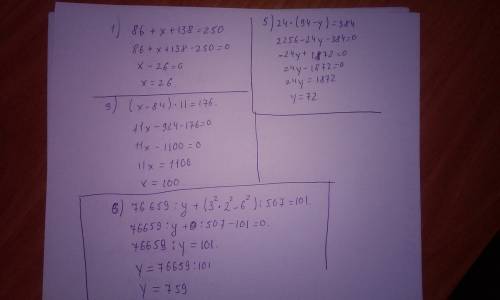 1) 86 + x + 138 = 250
86 + x + 138 - 250 = 0
x - 26 = 0
x = 26
3) (x - 84) · 11 = 176.
11x - 924 - 176 = 0
11x - 1100 = 0
11x = 1100
x = 100
5) 24 · (94 - y) = 384
2256 - 24y - 384 = 0
-24y + 1872 = 0
24y - 1872 = 0
24y = 1872
y = 72
6) 76659 : y + (3² · 2² - 6²) : 507 = 101.
76659 : y + 0 : 507 - 101 = 0.
76659 : y = 101.
y = 76659 : 101
y = 759